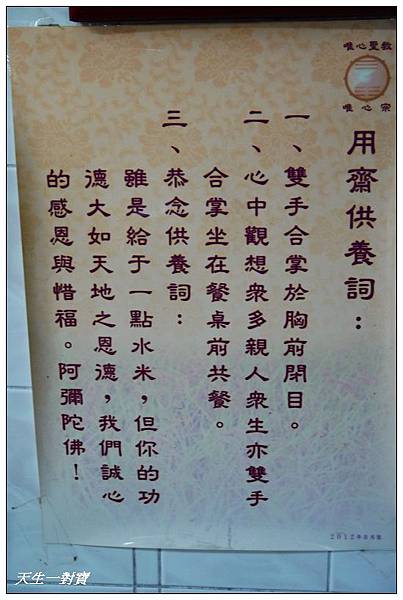 唯心聖教
唯心宗
用齋供養詞：
一、雙手合掌於胸前閉目。
二、心中觀想衆多親人衆生亦雙手
合掌坐在餐桌前共餐。
三、恭念供養詞：
雖是給于一點水米，但你的功
德大如天地之恩德，我們誠心
的感恩與惜福。阿彌陀佛！
天生一對寶